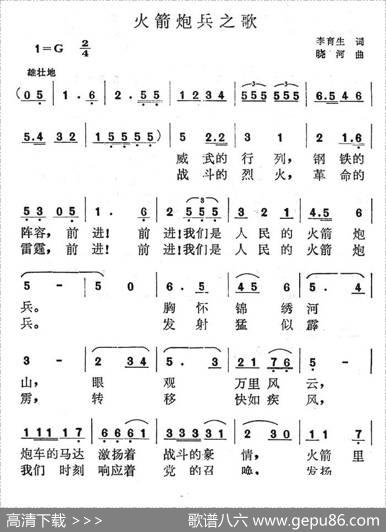 火箭炮兵之歌
1=G 2/4
李育生 词
晓河 曲
雄壮地
(0 5 | 1 . 6 | 2 . 5 5 | 1 2 3 4 | 5 5 5 5 5 5 | 6 . 5 4 6 |
5 . 4 3 2 | 1 5 5 5 5 ) | 5 2 . 2 | 3 1 | 2 1 . 6 |
威武的 行列, 钢铁的
战斗的 烈火, 革命的
5 3 0 5 | 1 . 6 | 2 5 5 5 | 3 2 0 2 | 4 . 5 6 |
阵容, 前进! 前进!我们是 人民的 火箭炮
雷霆, 前进! 前进!我们是 人民的 火箭炮
5 - | 5 0 | 6 . 5 | 4 5 | 1 . 2 |
兵。 胸怀锦绣河
兵。 发射猛似霹
3 - | 2 3 4 | 5 . 3 | 2 1 7 6 | 5 - |
山, 眼观 万里风云,
雳, 转移 快如疾风,
1 1 1 1 7 | 6 6 6 6 1 | 3 3 3 3 1 | 2 0 3 0 | 1 1 . 7 |
炮车的马达 激扬着 战斗的豪情, 火箭里
我们时刻 响应着 党的召唤, 发扬
高清下载 >>>
歌谱八六 www.gepu86.com